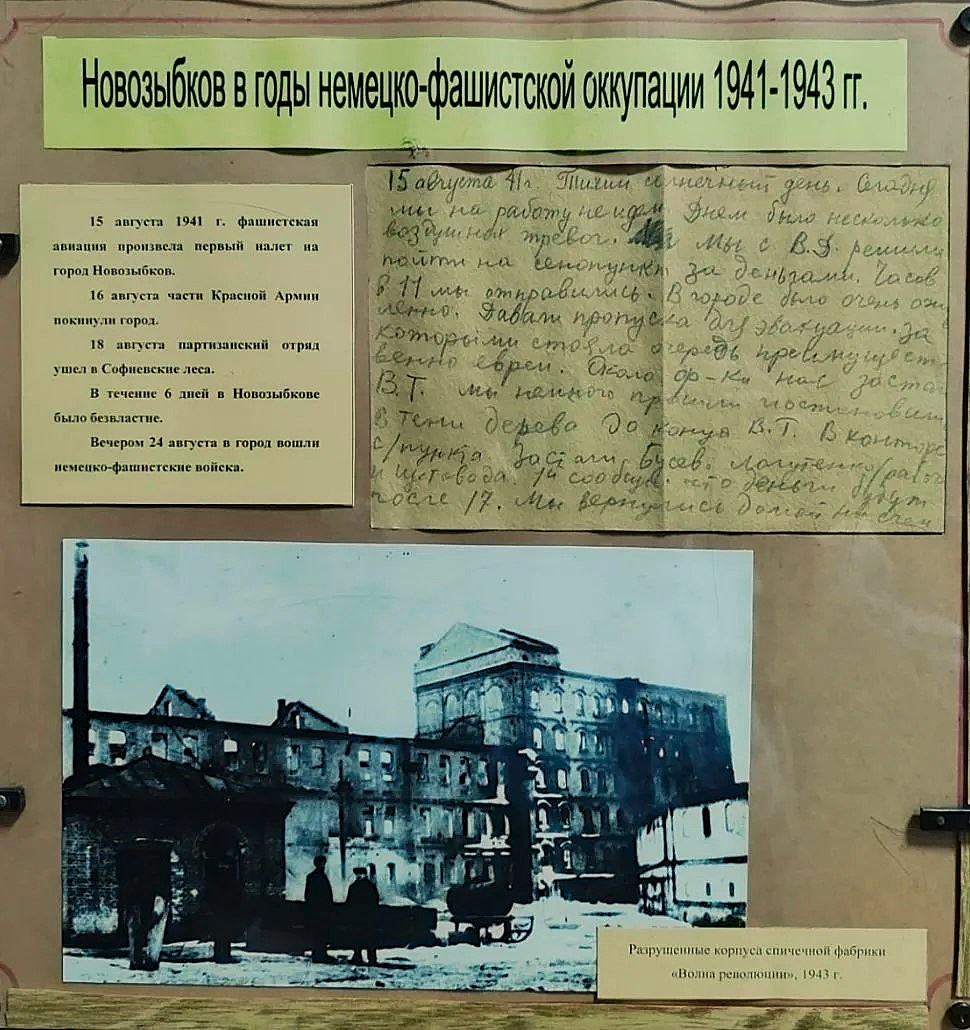 Новозыбков в годы немецко-фашистской оккупации 1941-1943 гг.
15 августа 1941 г. фашистская
авиация произвела первый налет на
город Новозыбков.
16 августа части Красной Армии
покинули город.
18 августа партизанский отряд
ушел в Софиевские леса.
В течение 6 дней в Новозыбкове
было безвластие.
Вечером 24 августа в город вошли
немецко-фашистские войска.
15 августа 41 г. Тихий солнечный день. Сегодня
мы на работу не идем. Днем было несколько
воздушных тревог. Мы с В.Д. решили
пойти на сенопункт за деньгами. Часов
в 11 мы отправились. В городе было очень ожи
ленно. Давали пропуска для эвакуации. За
которыми стояла очередь преимуществ
венно евреи. Около ф-ки нас заста
В.Т. мы немного
в тени дерева до конца В.Т. В конторе
с/пункта застали Бусев.
и Щитовода. деньги будут
после 17. Мы вернулись домой ни с чем
Разрушенные корпуса спичечной фабрики
«Волна революции», 1943 г.